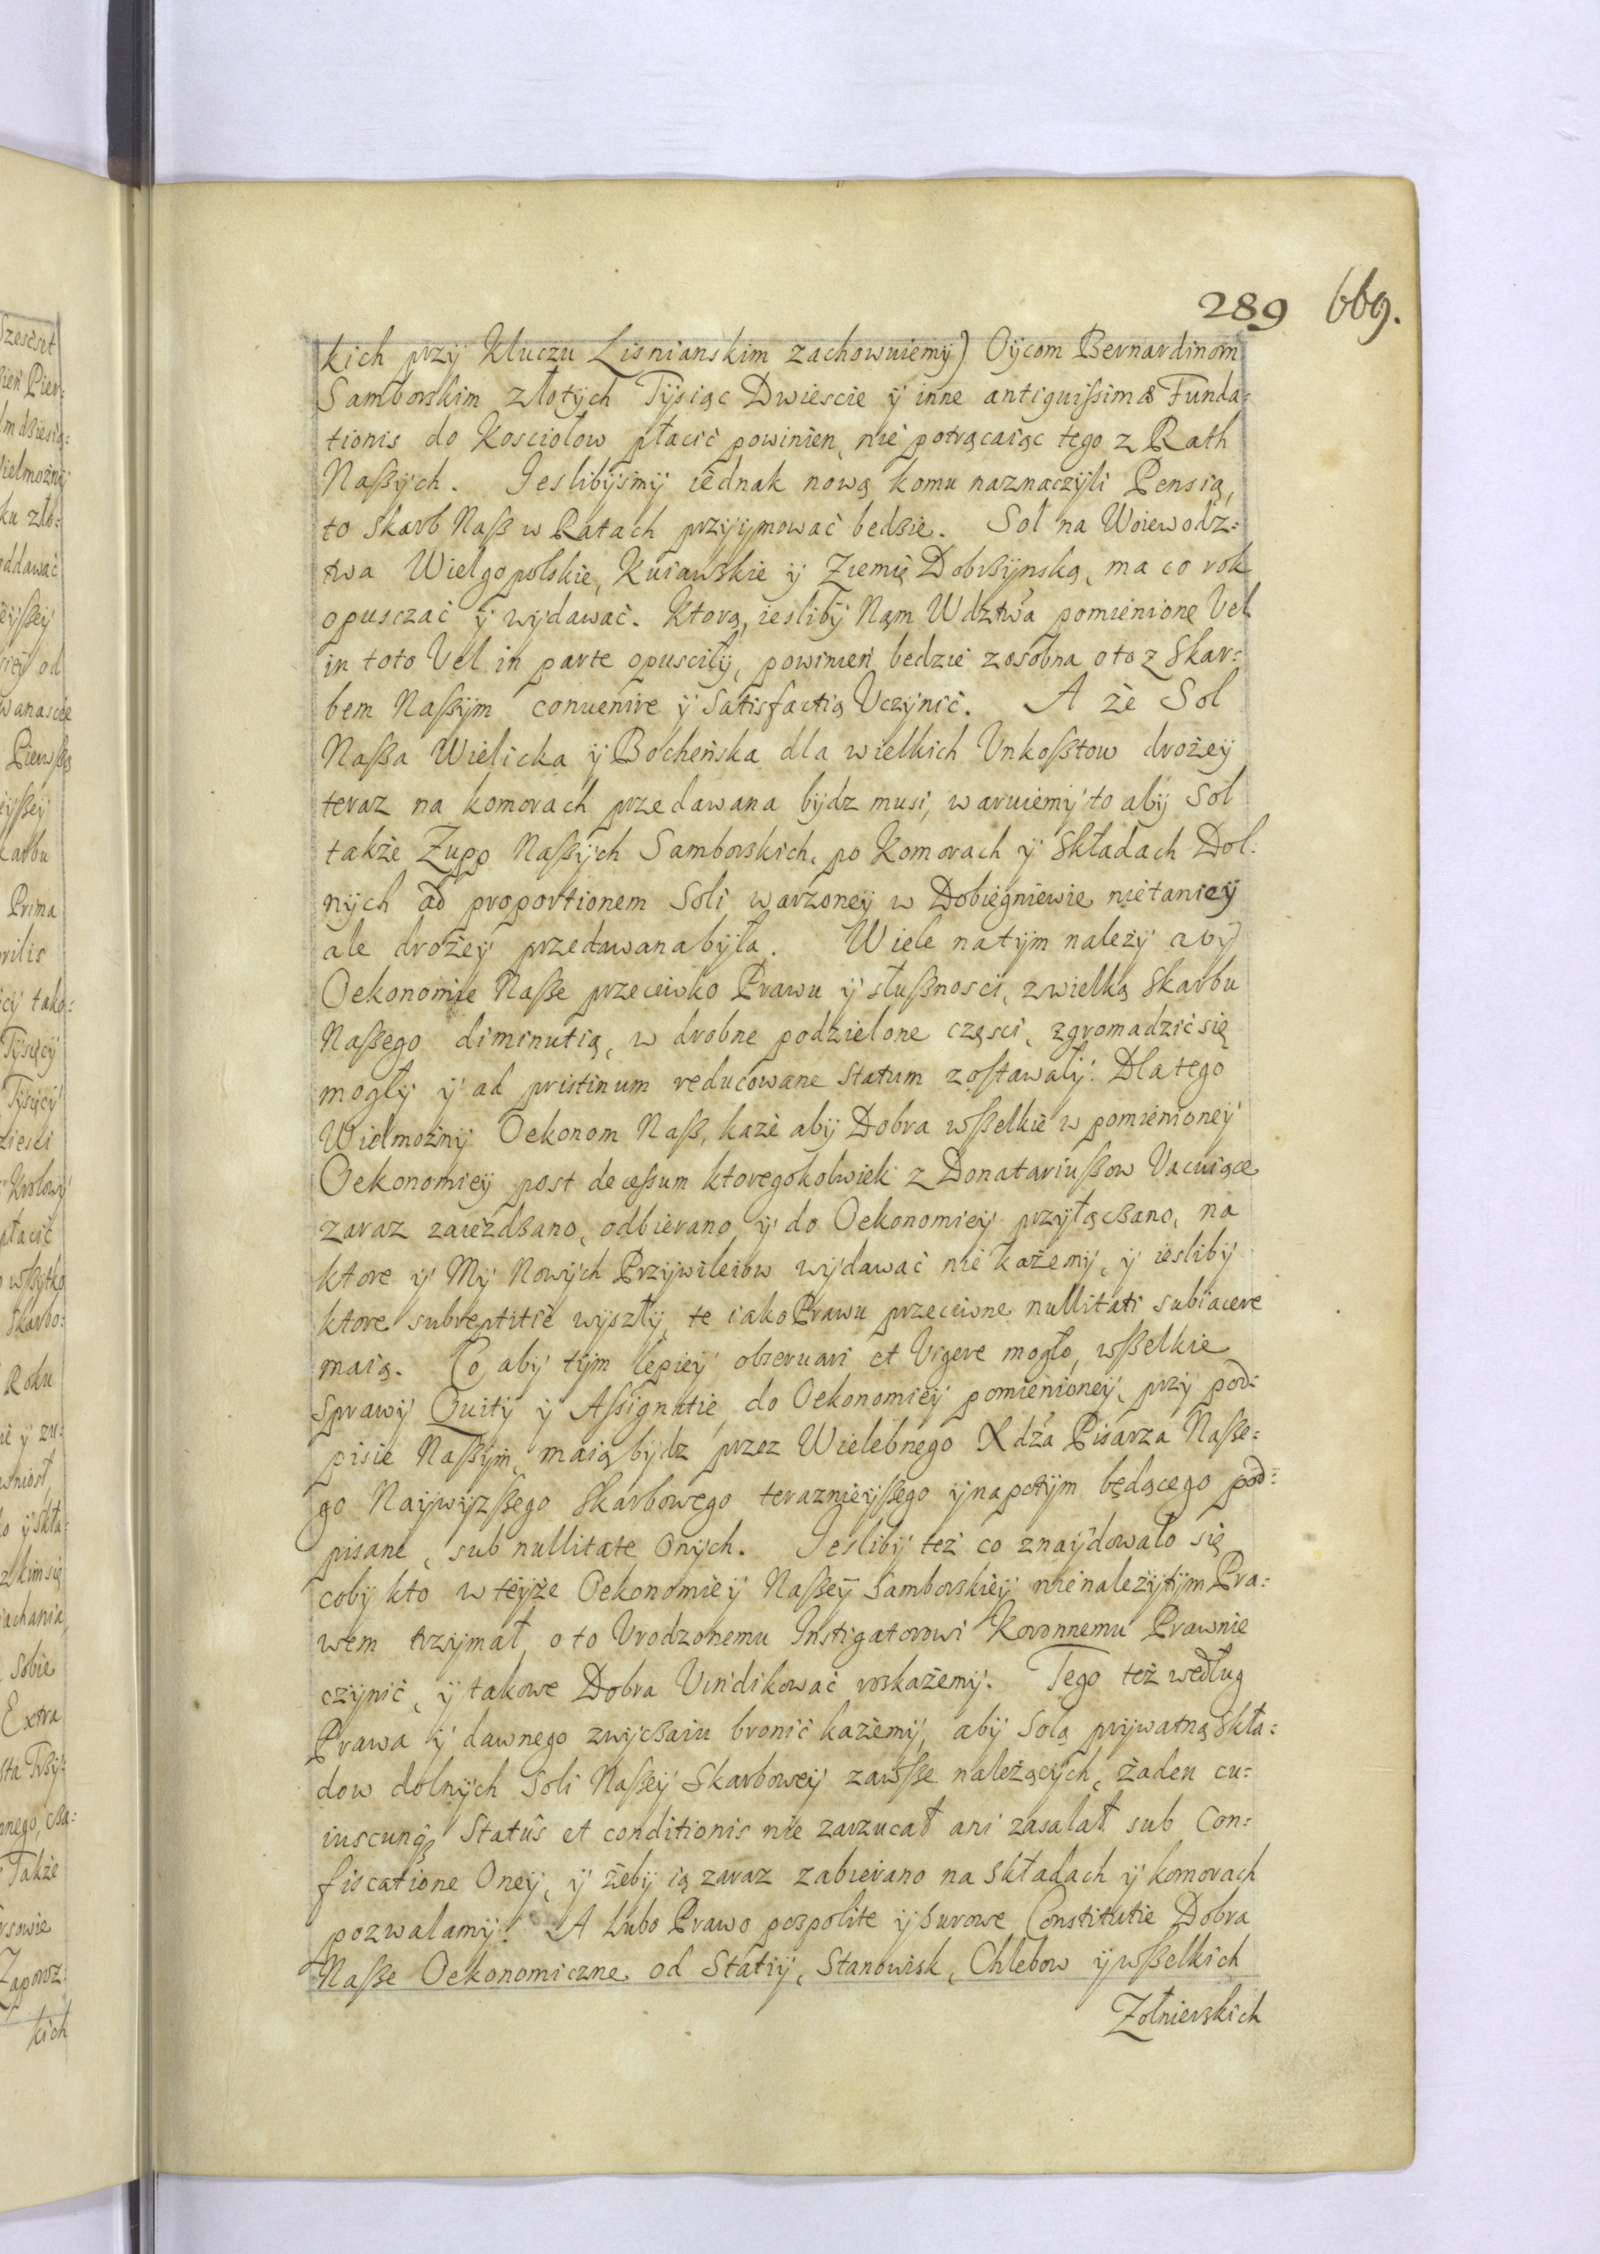 289 669.
kich przy Kluczu Lisnianskim zachowuiemy) Oycom Bernardinom
Samborskim złotych Tysiąc Dwiescie y inne antiquissimæ Funda-
tionis do Kosciołow płacić powinien, nie potrącaiąc tego z Rath
Naßych. Ieslibysmy iednak nową komu naznaczyli Pensią,
to Skarb Naß w Ratach przyymować bedzie. Sol na Woiewodz-
twa Wielgopolskie, Kuiawskie y Ziemię Dobrzynską, ma co rok
opusczać y wydawać. Ktorą, iesliby Nam Wdztwa pomienione Vel
in toto Vel in parte opusciły, powinien bedzie zosobna oto z Skar-
bem Naßym conuenire y Satisfactią Uczynić. A że Sol
Naßa Wielicka y Bocheńska dla wielkich Vnkoßtow drożey
teraz na komorach przedawana bydz musi, waruiemy to aby Sol
także Zupp Naßych Samborskich, po Komorach y Składach Dol-
nych ad proportionem Soli warzoney w Dobiegniewie nietaniey
ale drożey przedawana była. Wiele natym należy aby
Oekonomie Naße przeciwko Prawu y słußnosci, zwielką Skarbu
Naßego diminutią, w drobne podzielone częsci, zgromadzić się
mogły y ad pristinum reducowane statum zostawały. Dlatego
Wielmożny Oekonom Naß, każe aby Dobra wßelkie w pomienioney
Oekonomiey post decessum ktoregokolwiek z Donatariußow Vacuiące
zaraz zaieżdżano, odbierano y do Oekonomiey przyłączano, na
ktore y My Nowych Przywileiow wydawać nie każemy, y iesliby
ktore subreptitie wyszły, te iako Prawu przeciwne nullitati subiacere
maią. Co aby tym lepiey obseruari et Vigere mogło, wßelkie
Sprawy Quity y Assignatie, do Oekonomiey pomienioney, przy pod-
pisie Naßym, maią bydz przez Wielebnego Xdza Pisarza Naße-
go Naywyzßego Skarbowego teraznieyßego ynapotym będącego pod-
pisane, sub nullitate onych. Iesliby też co znaydowało się
coby kto w teyże Oekonomiey Naßey Samborskiey nienależytym Pra-
wem trzymał, oto Vrodzonemu Instigatorowi Koronnemu Prawnie
czynić, y takowe Dobra Vindikować roskażemy. Tego też według
Prawa y dawnego zwyczaiu bronić każemy, aby Solą prywatną Skła-
dow dolnych Soli Naßey Skarbowey zawße należących, żaden cu-
iuscunq3 Statûs et conditionis nie zarzucał ani zasalał sub Con-
fiscatione Oney, y żeby ią zaraz zabierano na Składach y komorach
pozwalamy. A Lubo Prawo pospolite y surowe Constitutie Dobra
Naße Oekonomiczne od Statiy, Stanowisk, Chlebow y wßelkich
Zołnierskich